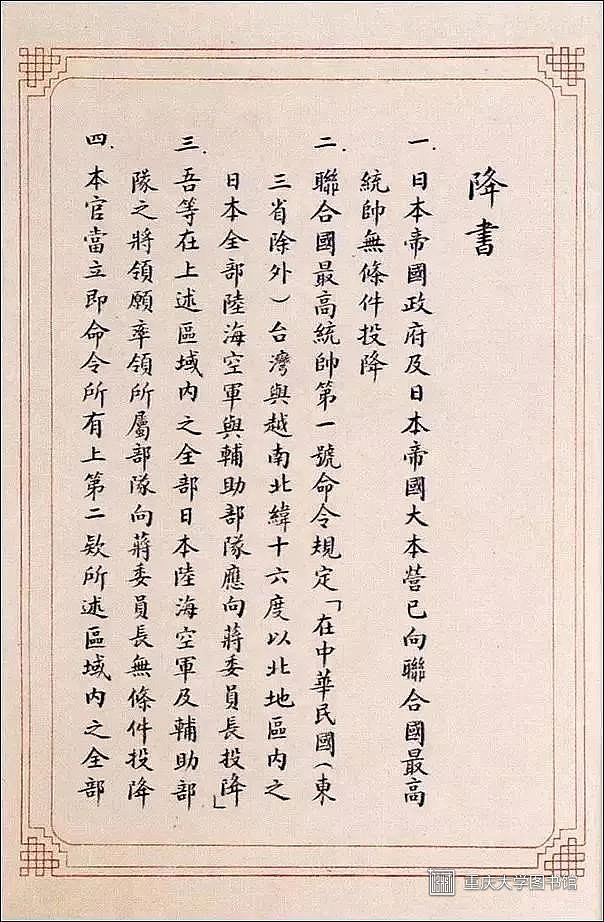 降書
一．日本帝國政府及日本帝國大本營已向聯合國最高
統帥無條件投降
二．聯合國最高統帥第一號命令規定「在中華民國（東
三省除外）台灣與越南北緯十六度以北地區內之
日本全部陸海空軍與輔助部隊應向蔣委員長投降」
三．吾等在上述區域內之全部日本陸海空軍及輔助部
隊之將領願率領所屬部隊向蔣委員長無條件投降
四．本官當立即命令所有上第二欵所述區域內之全部
重庆大学图书馆